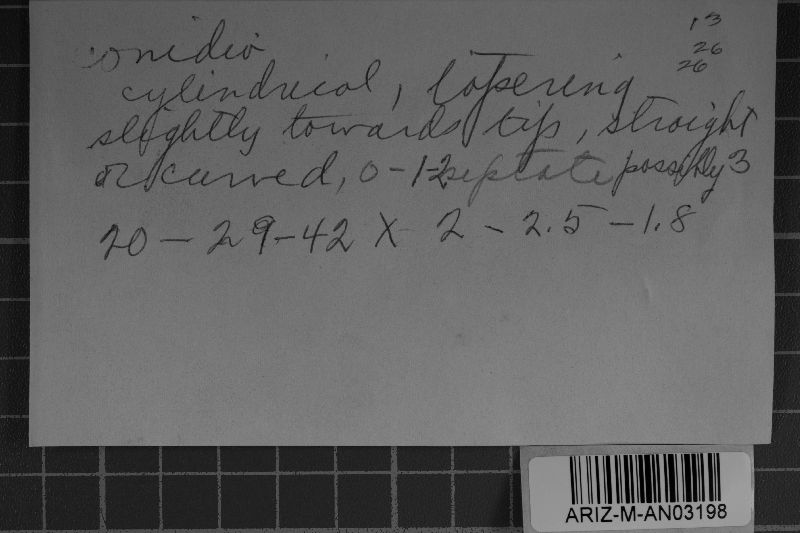 13
26
26
conidia
cylindrical, tapering
slightly towards tip, straight
or curved, 0-1-2 septate possibly 3
20 - 29-42 X 2 - 2.5 - 1.8
ARIZ-M-AN03198